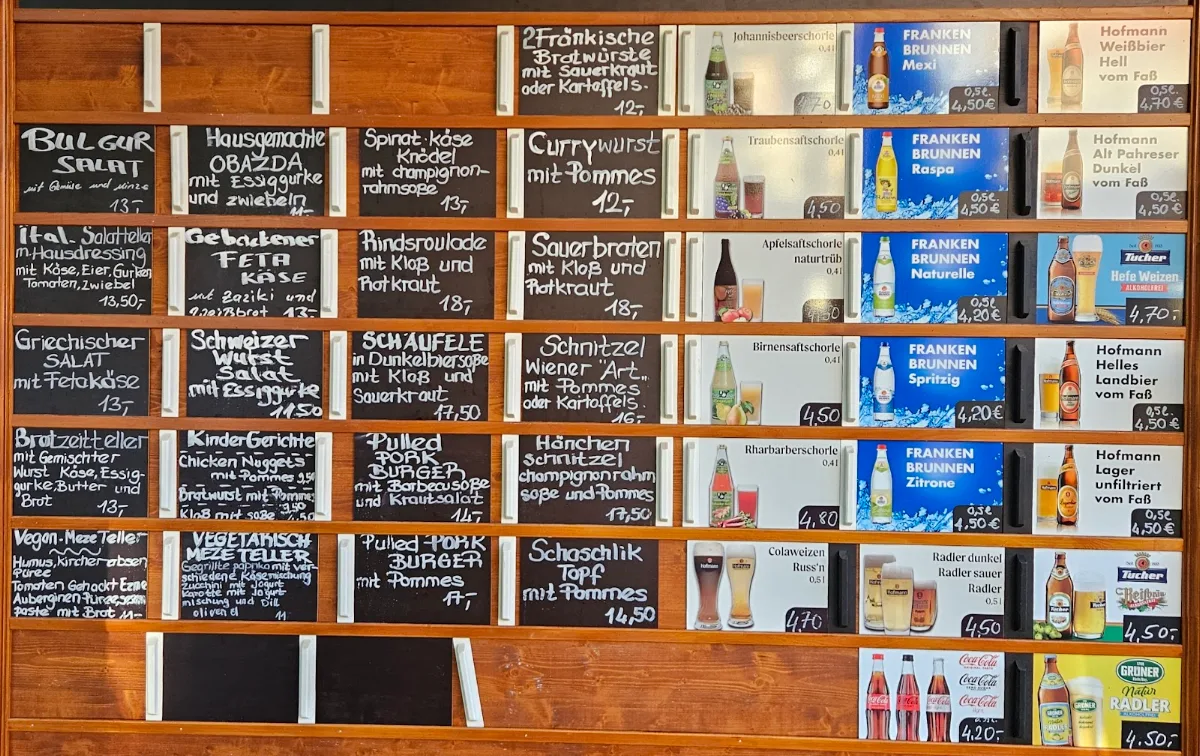 2 Fränkische
Bratwürste
mit Sauerkraut
oder Kartoffels.
12,-
Johannisbeerschorle
0,4 l
FRANKEN
BRUNNEN
Mexi
0,5l.
4,50€
Hofmann
Weißbier
Hell
vom Faß
0,5l.
4,70€
BULGUR
SALAT
mit Gemüse und Minze
13,-
Hausgemachte
OBAZDA
mit Essiggurke
und zwiebeln
11-
Spinat-käse
Knödel
mit champignon-
rahmsoße
13,-
Currywurst
mit Pommes
12,-
Traubensaftschorle
0,4 l
4,50
FRANKEN
BRUNNEN
Raspa
0,5l.
4,50€
Hofmann
Alt Pahreser
Dunkel
vom Faß
0,5l.
4,50€
Ital. Salatteller
m. Hausdressing
mit Käse, Eier, Gurken
Tomaten, Zwiebel
13,50,-
Gebackener
FETA
KÄSE
mit Zaziki und
weißbrot 13-
Rindsroulade
mit Kloß und
Rotkraut
18,-
Sauerbraten
mit Kloß und
Rotkraut
18,-
Apfelsaftschorle
naturtrüb
0,4 l
4,50
FRANKEN
BRUNNEN
Naturelle
0,5l.
4,20€
Tucher
Hefe Weizen
ALKOHOLFREI
4,70,-
Griechischer
SALAT
mit Fetakäse
13,-
Schweizer
Wurst
Salat
mit Essiggurke
11,50
SCHÄUFELE
in Dunkelbiersoße
mit Kloß und
Sauerkraut
17,50
Schnitzel
Wiener "Art"
mit Pommes
oder Kartoffels.
16,-
Birnensaftschorle
0,4 l
4,50
FRANKEN
BRUNNEN
Spritzig
4,20€
Hofmann
Helles
Landbier
0,5l.
4,50€
Brotzeitteller
mit Gemischter
Wurst Käse, Essig-
gurke, Butter und
Brot 13,-
KinderGerichte
Chicken Nuggets
mit Pommes 9,50
Bratwurst mit Pommes
9,50
Kloß mit soße 4,50
Pulled
PORK
BURGER
mit Barbeausoße
und Krautsalat
14,-
Hänchen
schnitzel
champignonrahm
soße und Pommes
17,50
Rharbarberschorle
0,4 l
4,80
FRANKEN
BRUNNEN
Zitrone
0,5l.
4,50€
Hofmann
Lager
unfiltriert
vom Faß
0,5l.
4,50€
Vegan-Meze Teller
Humus, Kircher erbsen
Püree
Tomaten Gehackt Ezme
Auberginen Püree,
paste mit Brot 11-
VEGETARISCH
MEZE TELLER
Gegrillte paprika mit ver-
schiedene Käsemischung
zucchini mit Jogurt
karotte mit Jogurt
mischung und Dill
oliven öl 11
Pulled-PORK
BURGER
mit Pommes
17,-
Schaschlik
Topf
mit Pommes
14,50
Colaweizen
Russ'n
0,5 l
4,70
Radler dunkel
Radler sauer
Radler
0,5 l
4,50
Tucher
4,50,-
Coca-Cola
Coca-Cola
Coca-Cola
4,20,-
GRÜNER
Natur
RADLER
4,50,-